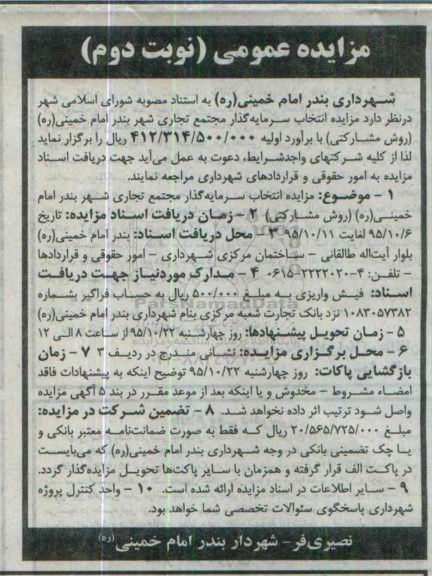 مزایده عمومی (نوبت دوم)
شهرداری بندر امام خمینی(ره) به استناد مصوبه شورای اسلامی شهر
درنظر دارد مزایده انتخاب سرمایه‌گذار مجتمع تجاری شهر بندر امام خمینی(ره)
(روش مشارکتی) با برآورد اولیه ۴۱۲/۳۱۴/۵۰۰/۰۰۰ ریال را برگزار نماید
لذا از کلیه شرکتهای واجدشرایط، دعوت به عمل می‌آید جهت دریافت اسناد
مزایده به امور حقوقی و قراردادهای شهرداری مراجعه نمایند.
۱ – موضوع: مزایده انتخاب سرمایه‌گذار مجتمع تجاری شهر بندر امام
خمینی(ره) (روش مشارکتی) ۲ – زمان دریافت اسناد مزایده: تاریخ
۹۵/۱۰/۶ لغایت ۹۵/۱۰/۱۱ ۳ – محل دریافت اسناد: بندر امام خمینی(ره)
بلوار آیت‌اله طالقانی – ساختمان مرکزی شهرداری – امور حقوقی و قراردادها
– تلفن: ۴–۰۶۱۵۲۲۲۲۰۲۰ ۴ – مدارک موردنیاز جهت دریافت
اسناد: فیش واریزی به مبلغ ۵۰۰/۰۰۰ ریال به حساب فراگیر بشماره
۱۰۸۳۰۵۷۳۸۲ نزد بانک تجارت شعبه مرکزی بنام شهرداری بندر امام خمینی(ره)
۵ – زمان تحویل پیشنهادها: روز چهارشنبه ۹۵/۱۰/۲۲ از ساعت ۸ الی ۱۲
۶ – محل برگزاری مزایده: نشانی مندرج در ردیف ۳ ۷ – زمان
بازگشایی پاکات: روز چهارشنبه ۹۵/۱۰/۲۲ توضیح اینکه به پیشنهادات فاقد
امضاء مشروط – مخدوش و یا اینکه بعد از موعد مقرر در بند ۵ آگهی مزایده
واصل شود ترتیب اثر داده نخواهد شد. ۸ – تضمین شرکت در مزایده:
مبلغ ۲۰/۵۶۵/۷۲۵/۰۰۰ ریال که فقط به صورت ضمانت‌نامه معتبر بانکی و
یا چک تضمینی بانکی در وجه شهرداری بندر امام خمینی(ره) که می‌بایست
در پاکت الف قرار گرفته و همزمان با سایر پاکت‌ها تحویل مزایده‌گذار گردد.
۹ – سایر اطلاعات در اسناد مزایده ارائه شده است. ۱۰ – واحد کنترل پروژه
شهرداری پاسخگوی سئوالات تخصصی شما خواهد بود.
نصیری‌فر – شهردار بندر امام خمینی(ره)
ParsNamadData